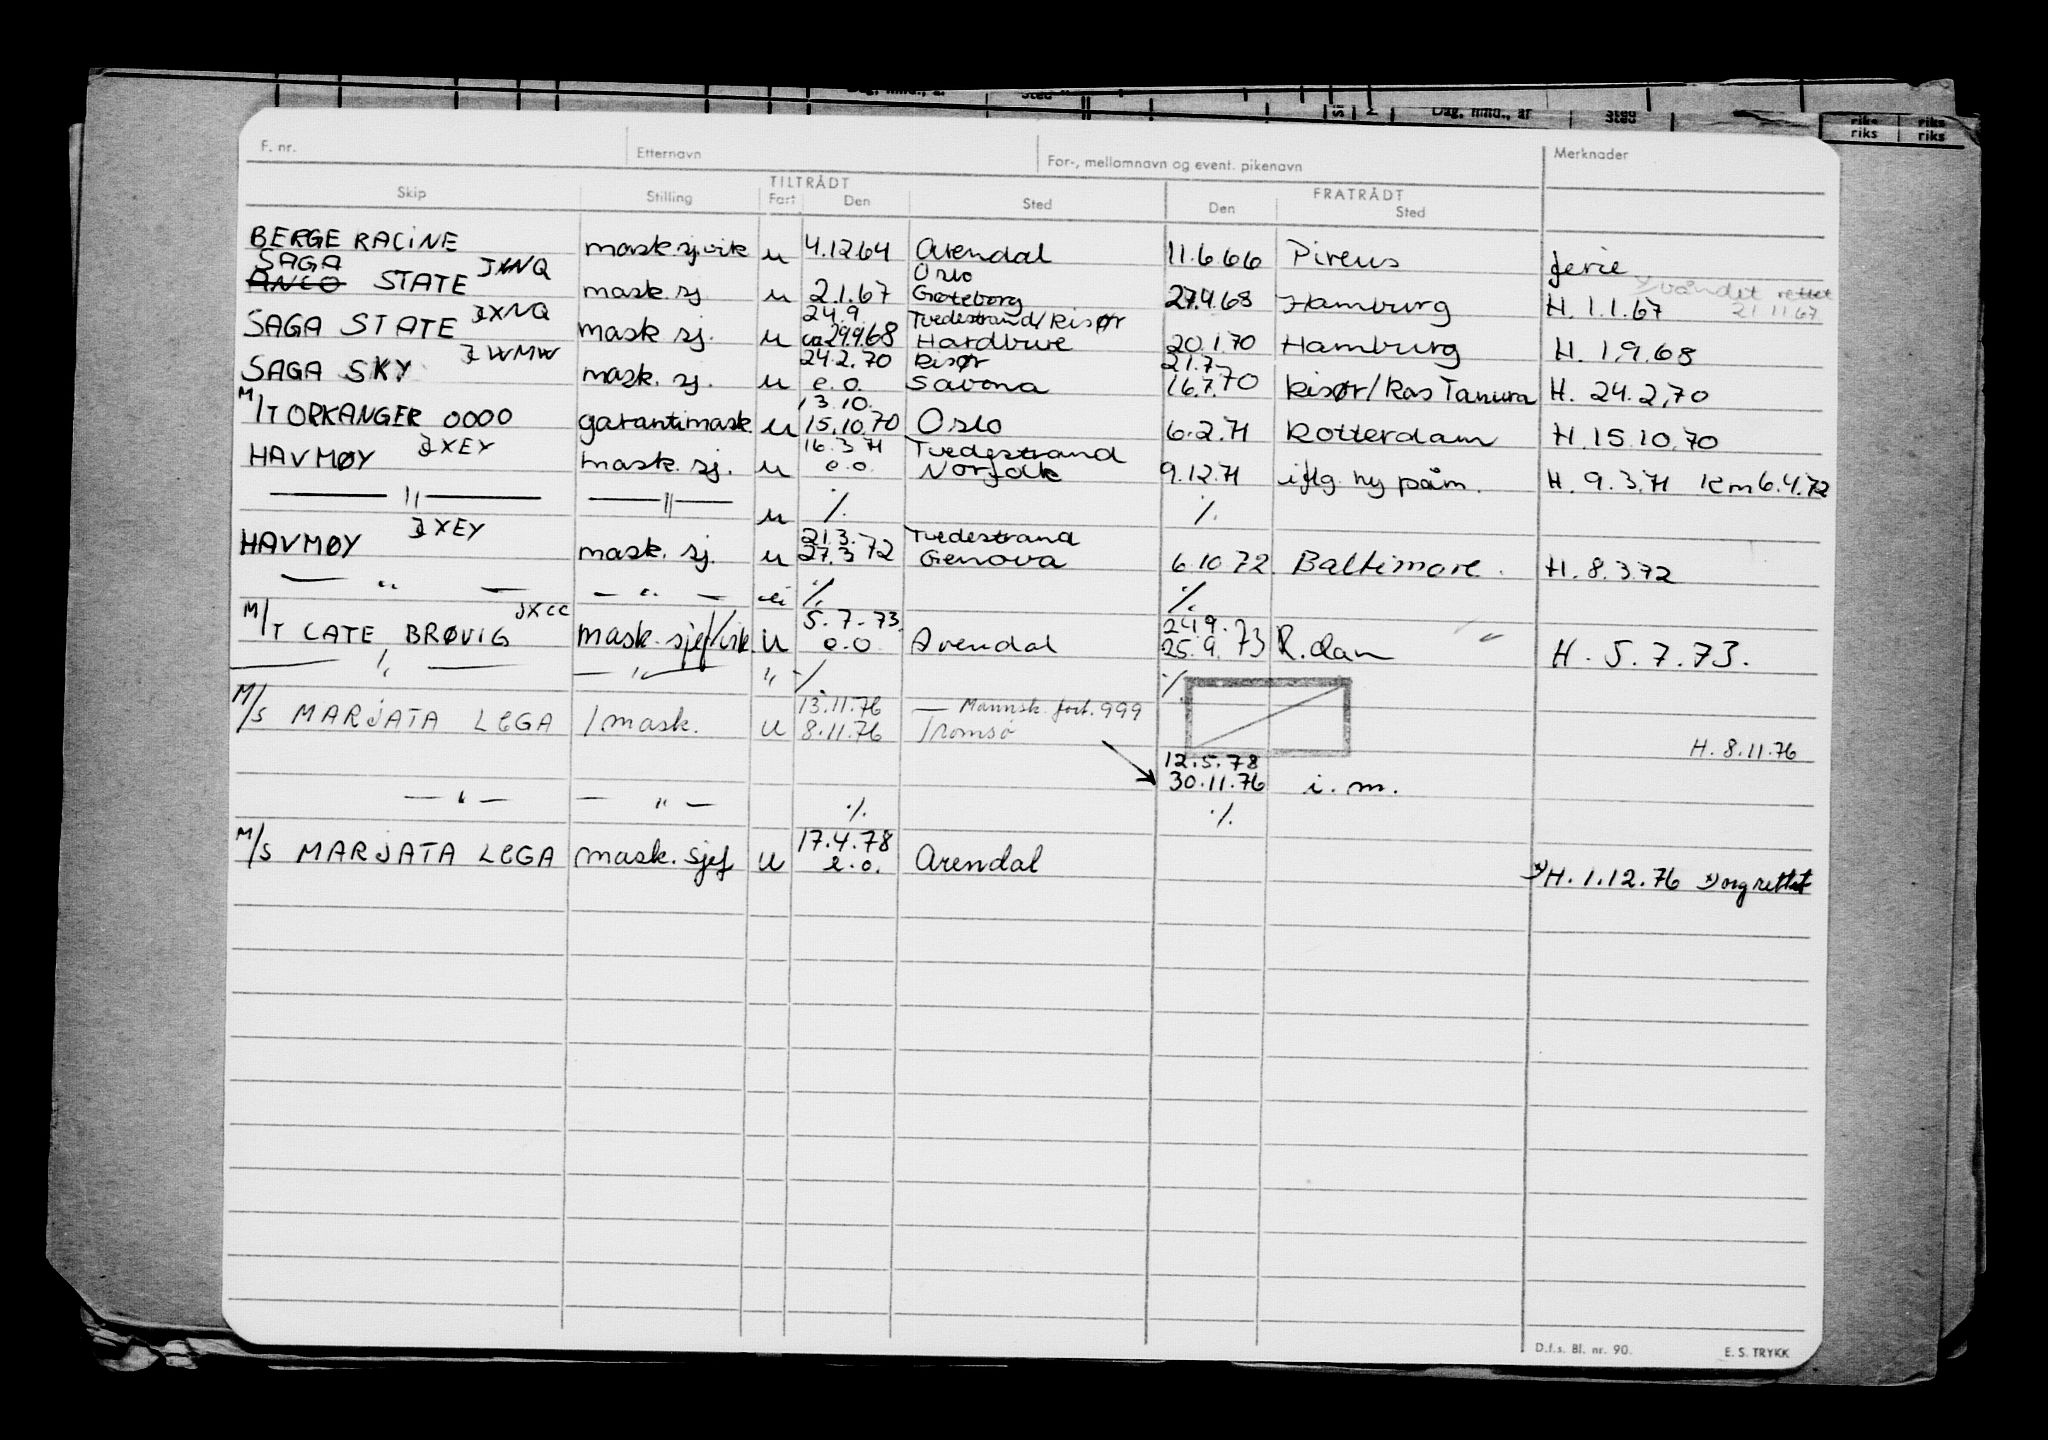 F. nr. Etternavn For-, mellomnavn og event. pikenavn Merknader
Skip Stilling TILTRÅDT Fart Den Sted FRATRÅDT Den Sted
BERGE RACINE mask.sjvik u 4.12.64 Arendal 11.6.66 Pireus ferie
SAGA JXNQ Oslo våndet rettet
ANCO STATE mask.sj u 2.1.67 Gøteborg 27.4.68 Hamburg H. 1.1.67 21 11 67
JXNQ 24.9. Tvedestrand/Risør
SAGA STATE mask sj. u ca 29.9.68 Hardbwe 20.1.70 Hamburg H. 1.9.68
JWMW 24.2.70 Risør 21.7.
SAGA SKY mask. sj. u e.o. Savona 16.7.70 Risør/Ras Tanura H. 24.2.70
13.10.
M/T ORKANGER 0000 garantimask. u 15.10.70 Oslo 6.2.71 Rotterdam H. 15.10.70
JXEY 16.3.71 Tvedestrand
HAVMØY mask. sj. u e.o. Norfolk 9.12.71 iflg. ny påm. H. 9.3.71 Km 6.4.72
— " — — " — u ./. ./.
JXEY 21.3. Tvedestrand
HAVMØY mask. sj. u 27.3.72 Genova 6.10.72 Baltimore. H. 8.3.72
— " — — " — ei ./. ./.
JXCC 5.7.73. 24.9.
M/T CATE BRØVIG mask. sjef/vik u e.o. Arendal 25.9.73 R.dam H. 5.7.73.
— " — — " — " ./. ./.
13.11.76 — Mannsk. fort. 999
M/S MARJATA LCGA 1 mask. u 8.11.76 Tromsø
H. 8.11.76
12.5.78
30.11.76 i.m.
— " — — " — ./. ./.
17.4.78
M/S MARJATA LCGA mask. sjef u e.o. Arendal x) H. 1.12.76 x) org rettet
D.f.s. Bl. nr. 90. E. S. TRYKK